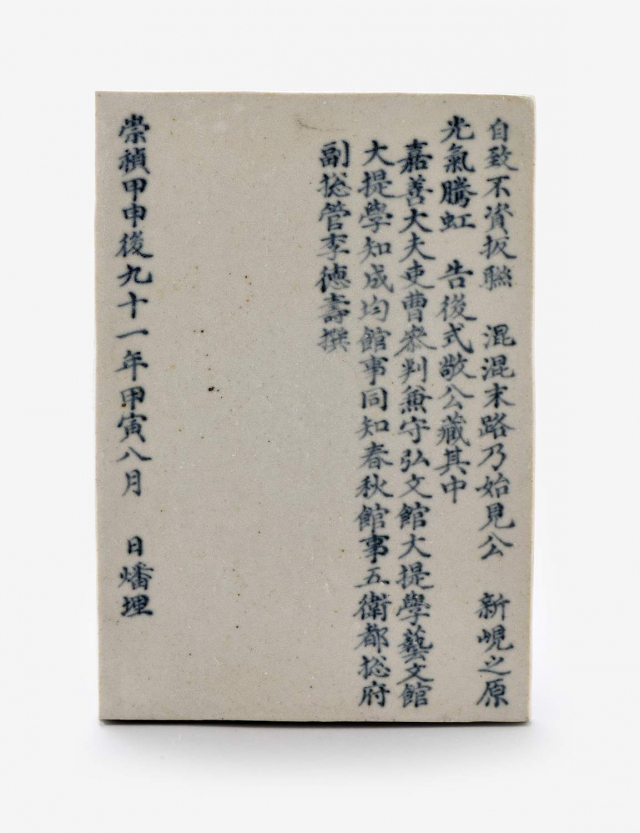 自致不資扳聯　混混末路乃始見公　新峴之原
光氣騰虹　告後式敬公藏其中
嘉善大夫吏曹參判兼守弘文館大提學藝文館
大提學知成均館事同知春秋館事五衛都捴府
副捴管李德壽撰
崇禎甲申後九十一年甲寅八月　日燔埋